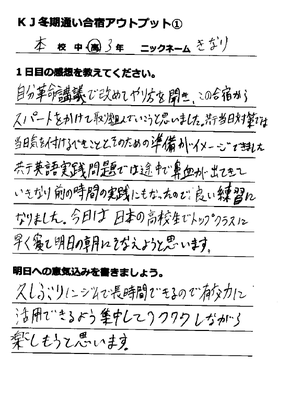 KJ冬期通い合宿アウトプット①
本 校 中・高 3年 ニックネーム きなり
1日目の感想を教えてください。
自分革命講義で改めてやり方を聞き、この合宿から
スパートをかけて取り組んでいこうと思いました。共テ当日対策では
当日気を付けるべきことと、そのための準備がイメージできました
共テ英語実践問題では途中で鼻血が出てきて
いきなり前の時間の実践にもなったので良い練習に
なりました。今日は日本の高校生でトップクラスに
早く寝て明日の朝にそなえようと思います。
明日への意気込みを書きましょう。
久しぶりに で長時間できるので有効に
活用できるよう集中してワクワクしながら
楽しもうと思います。